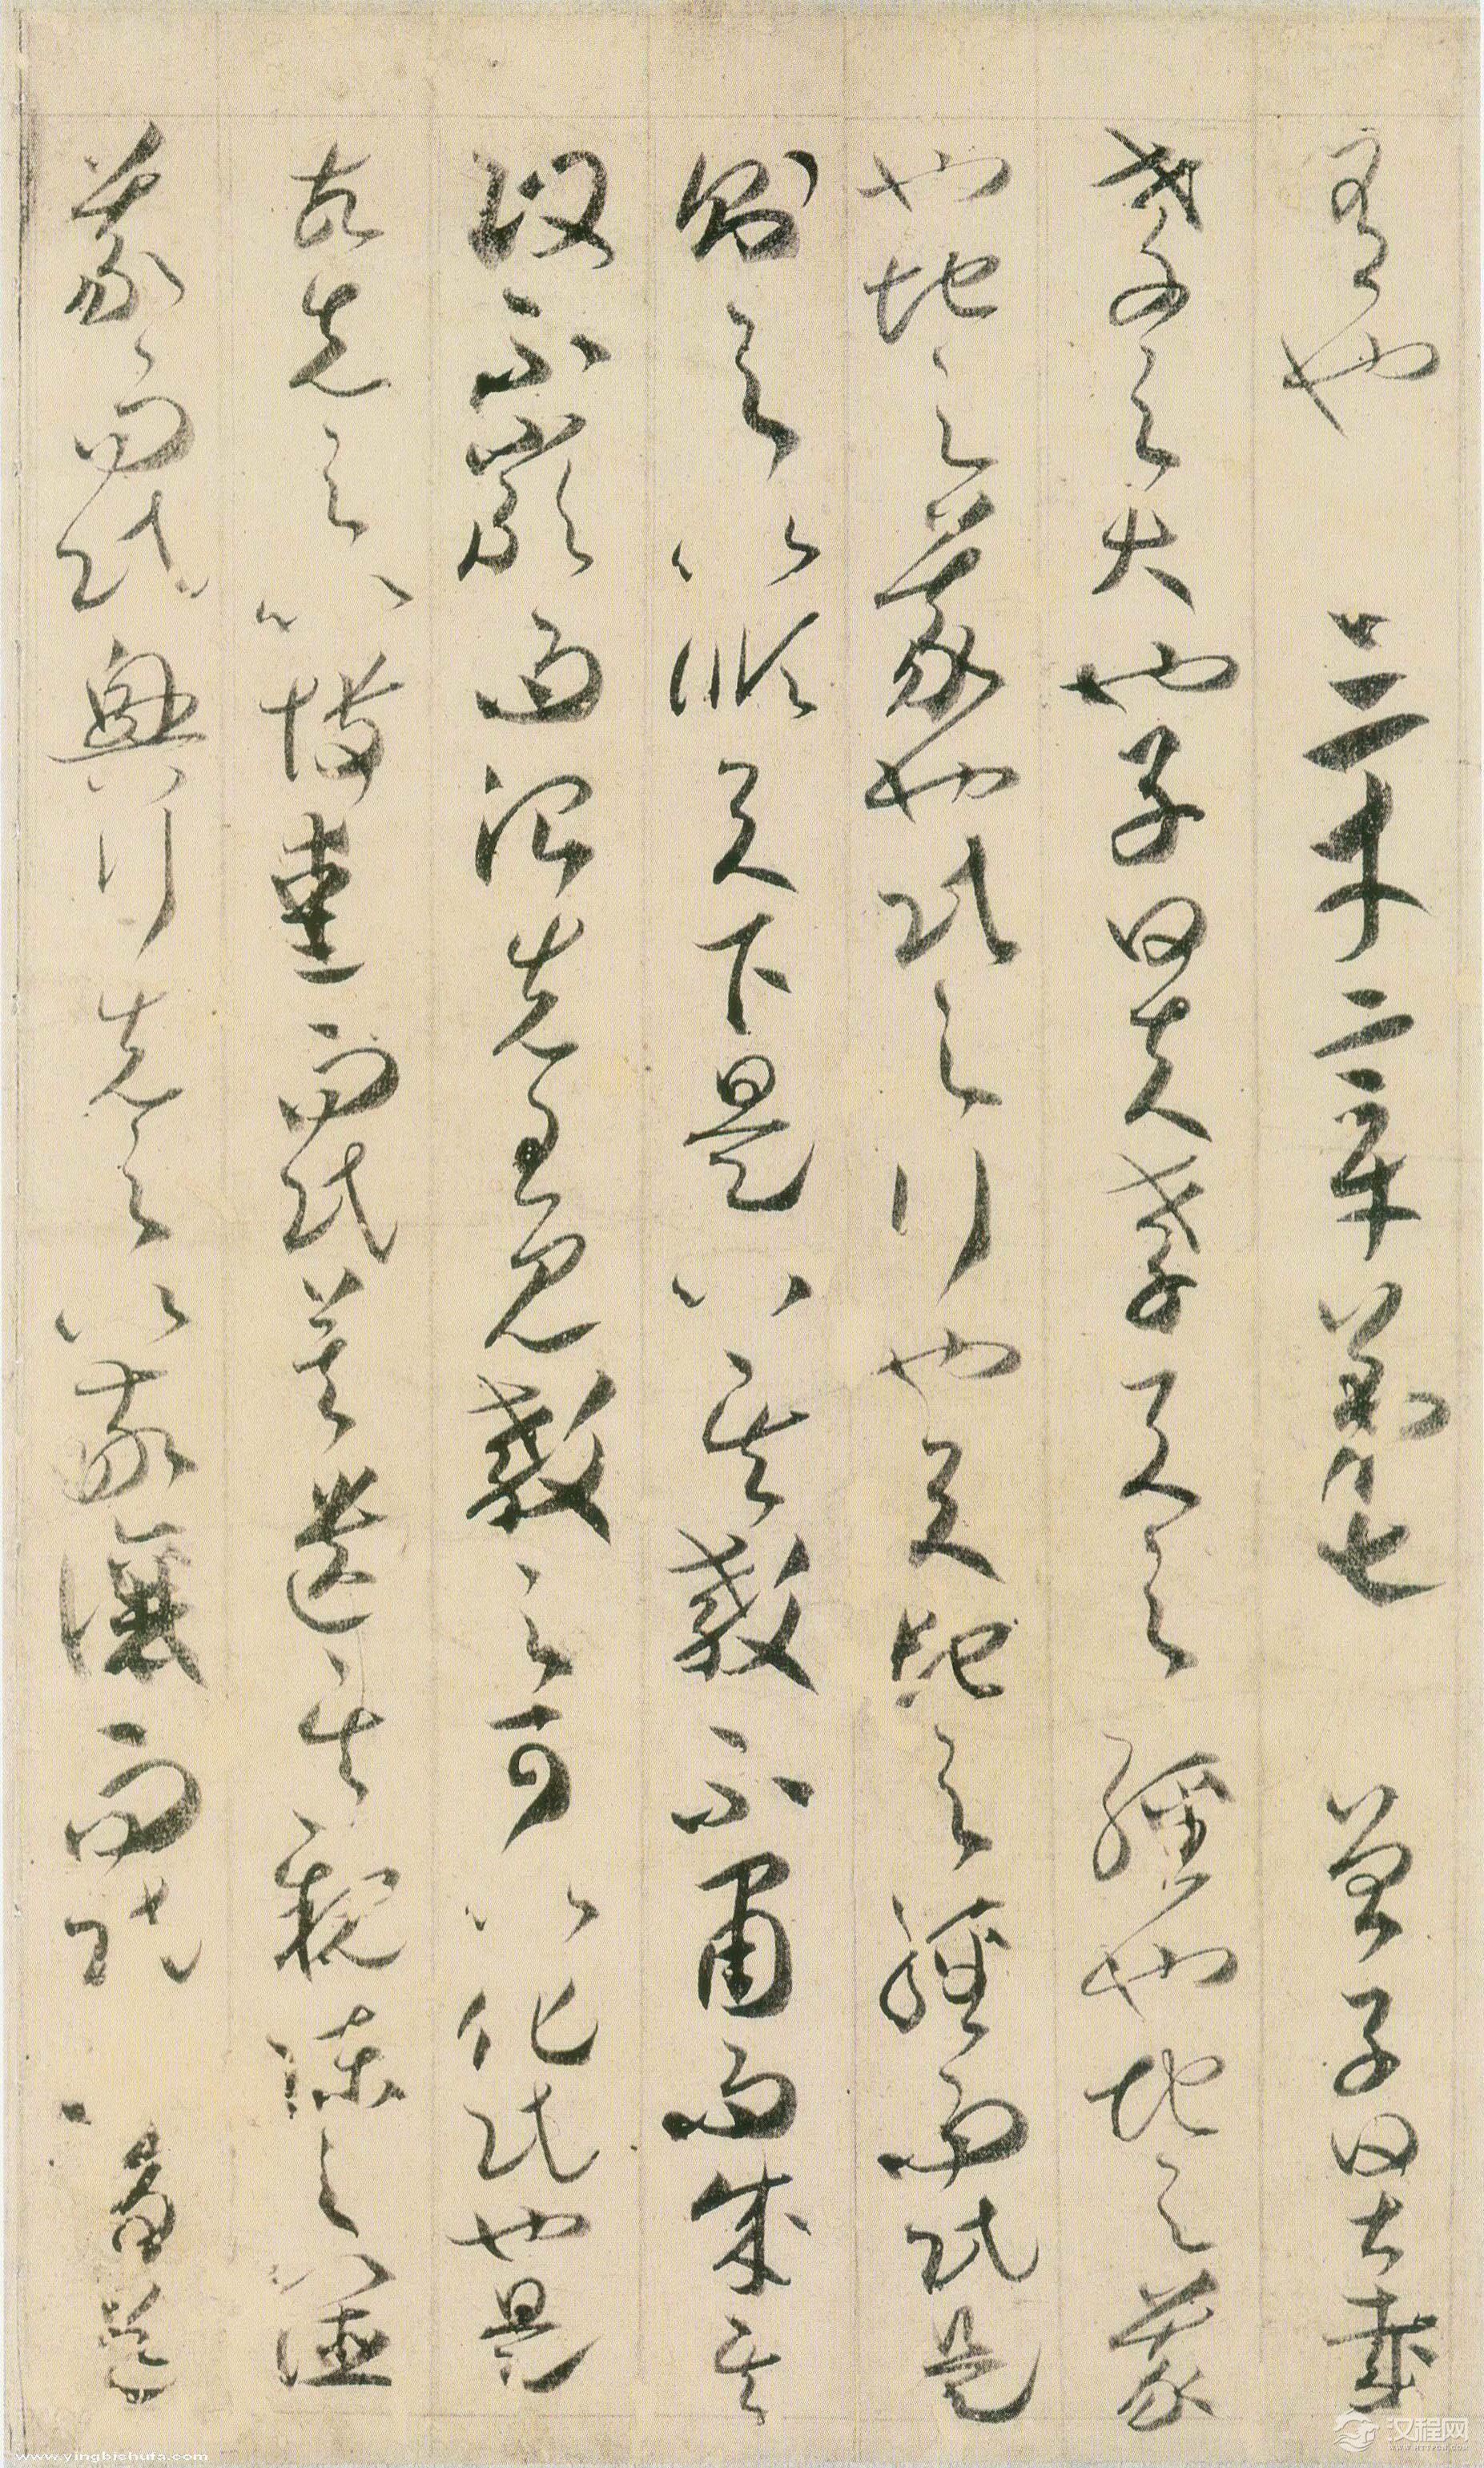 有也　三才章第七　曾子曰甚哉
孝之大也子曰夫孝天之經也地之義
也地之義也民之行也天地之經而民是
則之以順天下是以其教不肅而成其
政不嚴而治先王見教之可以化民也是
故先之以博而民莫遺其親陳之以德
義而民興行先之以敬讓而民
www.yingbishufa.com
汉程网